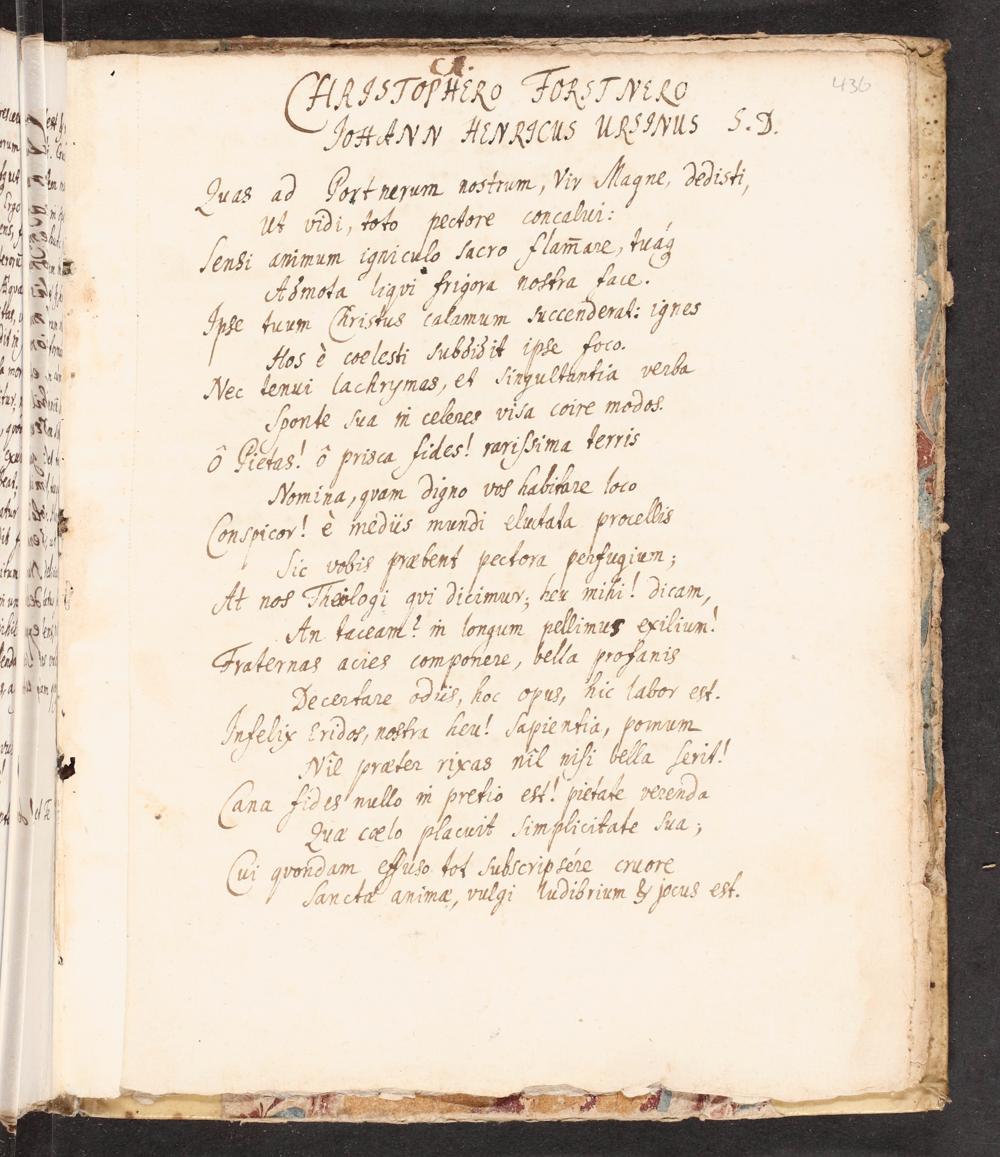 CI.
436
CHRISTOPHERO FORSTNERO
JOHANN HENRICUS URSINUS S.D.
Quas ad Portnerum nostrum, Vir Magne, dedisti,
Ut vidi, toto pectore concalui:
Sensi animum igniculo sacro flam̄are, tuáq́
Admota liqvi frigora nostra face.
Ipse tuum Christus calamum succenderat: ignes
Hos è coelesti subdidit ipse foco.
Nec tenui lachrymas, et singultantia verba
Sponte sua in celeres visa coire modos.
ô Pietas! ô prisca fides! rarissima terris
Nomina, qvam digno vos habitare loco
Conspicor! è mediis mundi eluctata procellis
Sic vobis præbent pectora perfugium;
At nos Theologi qvi dicimur; heu mihi! dicam,
An taceam? in longum pellimus exilium!
Fraternas acies componere, bella profanis
Decertare odiis, hoc opus, hic labor est.
Infelix Eridos, nostra heu! Sapientia, pomum
Nil præter rixas nil nisi bella serit!
Cana fides nullo in pretio est! pietate verenda
Quæ cælo placuit simplicitate sua;
Cui qvondam effuso tot subscripsére cruore
Sanctæ animæ, vulgi ludibrium & jocus est.